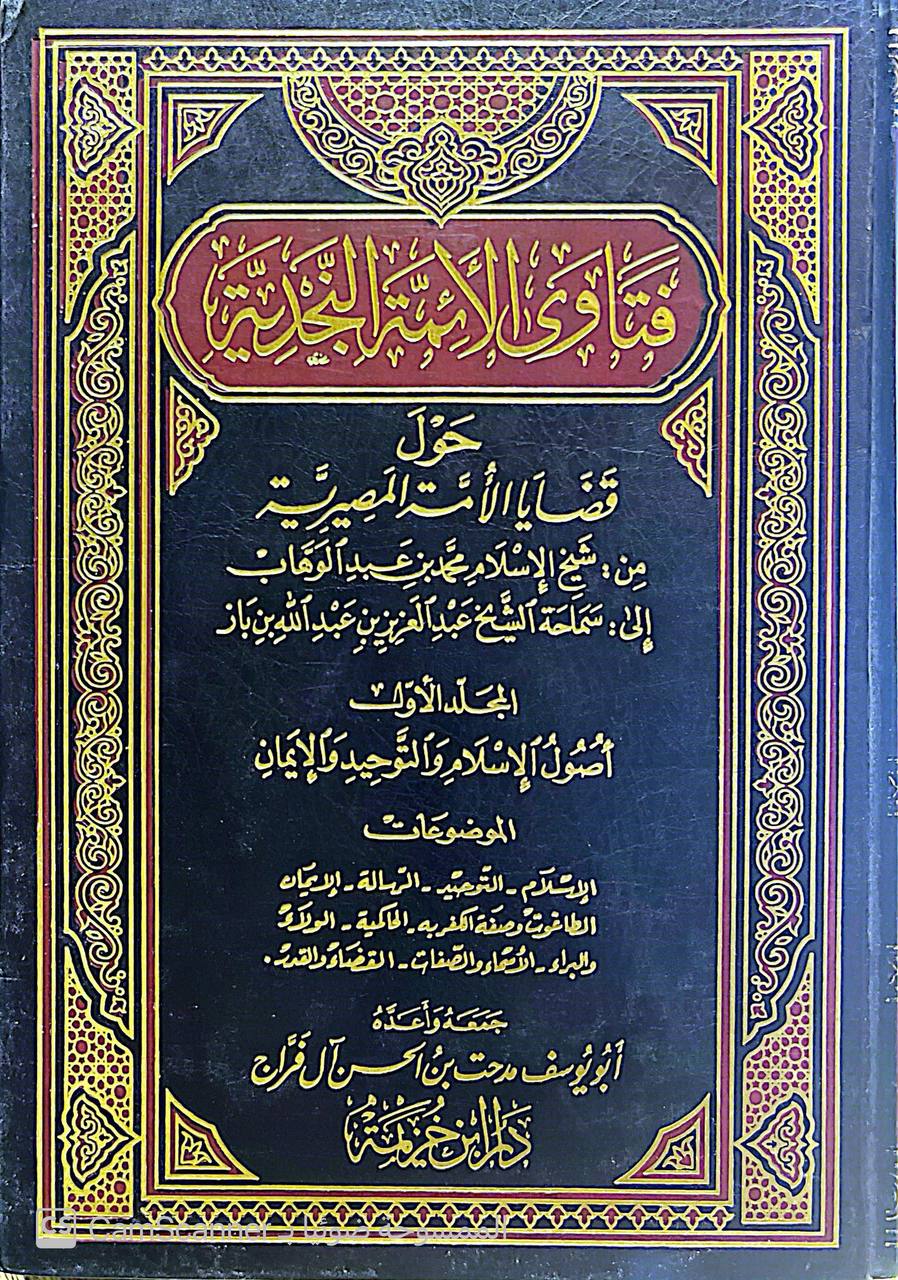 فَتَاوَى الأَئِمَّة النَّجْدِيَّة
حَوْلَ
قَضَايَا الأُمَّة المَصِيرِيَّة
مِن: شَيْخِ الإِسْلَامِ مُحَمَّد بن عَبدِ الوَهَّاب
إِلىٰ: سَمَاحَة الشَّيْخ عَبْدِ العَزِيزِ بنِ عَبْدِ اللهِ بنِ بَاز
المجَلّد الأوّل
أُصُولُ الإِسْلَامِ وَالتَّوْحِيدِ وَالإِيمَانِ
الموضوعات
الإسْلام - التوحيد - الرسالة - الإيمان
الطاغوت وصفة الكفر به - الحاكمية - الولاء
والبراء - الأسماء والصّفات - القضاء والقدر.
جَمَعَهُ وَأَعَدَّهُ
أَبُو يُوسف مدحت بنُ الحسن آل فَرَّاج
دَار ابن خُزَيمَة
الممسوحة ضوئيا بـ CamScanner